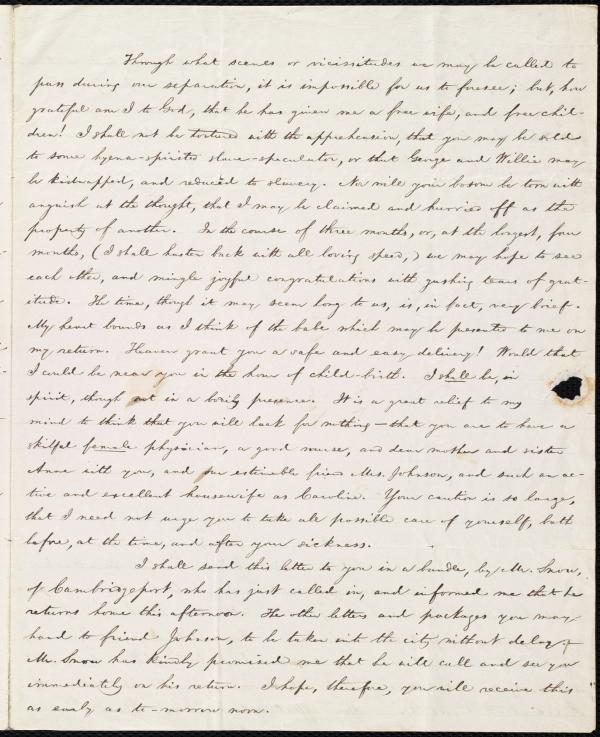 Through what scenes or vicissitudes we may be called to
pass during our separation, it is impossible for us to foresee; but, how
grateful am I to God, that he has given me a free wife, and free chil-
dren! I shall not be tortured with the apprehension, that you may be sold
to some hyena-spirited slave-speculator, or that George and Willie may
be kidnapped, and reduced to slavery. Nor will your bosom be torn with
anguish at the thought, that I may be claimed and hurried off as the
property of another. In the course of three months, or, at the longest, four
months, (I shall hasten back with all loving speed,) we may hope to see
each other, and mingle joyful congratulations with gushing tears of grat-
itude. The time, though it may seem long to us, is, in fact, very brief.
My heart bounds as I think of the babe which may be presented to me on
my return. Heaven grant you a safe and easy delivery! Would that
I could be near you in the hour of child-birth. I shall be, in
spirit, though not in a bodily presence. It is a great relief to my
mind to think that you will lack for nothing—that you are to have a
skilful female physician, a good nurse, and dear mother and sister
Anne with you, and our estimable friend Mrs. Johnson, and such an ac-
tive and excellent housewife as Caroline. Your caution is so large,
that I need not urge you to take all possible care of yourself, both
before, at the time, and after your sickness.
I shall send this letter to you in a bundle, by Mr. Snow,
of Cambridgeport, who has just called in, and informed me that he
returns home this afternoon. The other letters and packages you may
hand to friend Johnson, to be taken into the city without delay.
Mr. Snow has kindly promised me that he will call and see you
immediately on his return. I hope, therefore, you will receive this
as early as to-morrow noon.